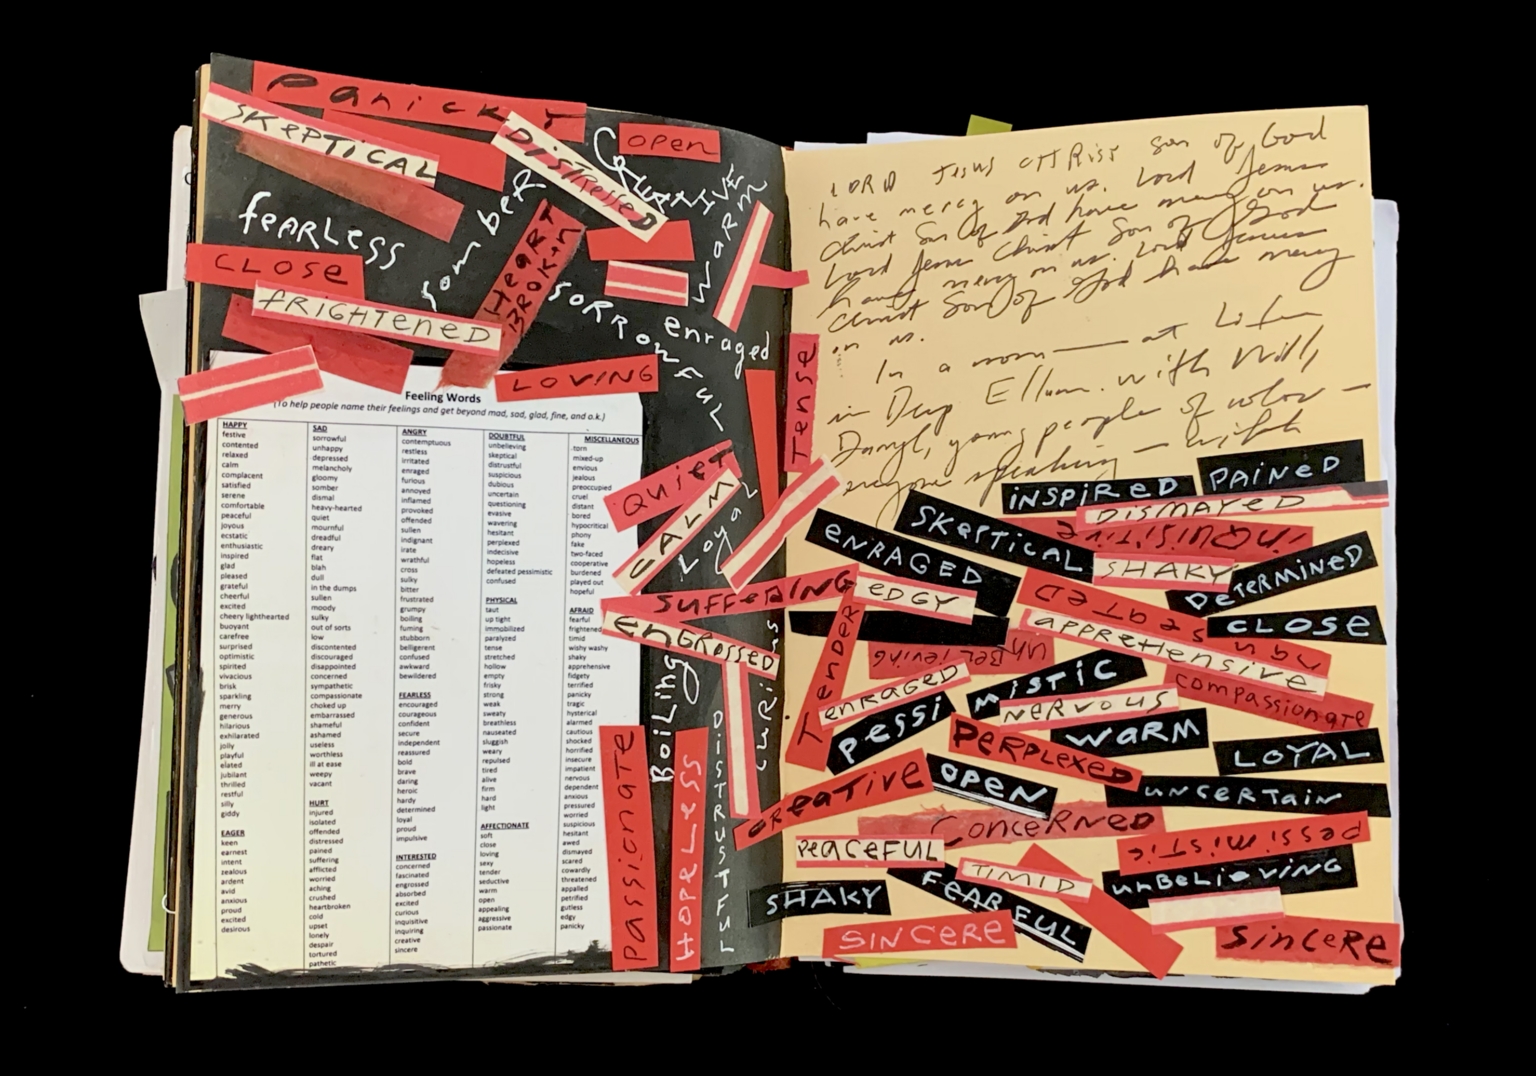 PANICKY
SKEPTICAL
DISTRESSED
OPEN
WARM
SOMBER
FEARLESS
HEART
BROKEN
CLOSE
FRIGHTENED
SORROWFUL
enraged
LOVING
TENSE
Feeling Words
(To help people name their feelings and get beyond mad, sad, glad, fine, and o.k.)
HAPPY
festive
contented
relaxed
calm
complacent
satisfied
serene
comfortable
peaceful
joyous
ecstatic
enthusiastic
inspired
glad
pleased
grateful
cheerful
excited
cheery lighthearted
buoyant
carefree
surprised
optimistic
spirited
vivacious
brisk
sparkling
merry
generous
hilarious
exhilarated
jolly
playful
elated
jubilant
thrilled
restful
silly
giddy
EAGER
keen
earnest
intent
zealous
ardent
avid
anxious
proud
excited
desirous
SAD
sorrowful
unhappy
depressed
melancholy
gloomy
somber
dismal
heavy-hearted
quiet
mournful
dreadful
dreary
flat
blah
dull
in the dumps
sullen
moody
sulky
out of sorts
low
discontented
discouraged
disappointed
concerned
sympathetic
compassionate
choked up
embarrassed
shameful
ashamed
useless
worthless
ill at ease
weepy
vacant
HURT
injured
isolated
offended
distressed
pained
suffering
afflicted
worried
aching
crushed
heartbroken
cold
upset
lonely
despair
tortured
pathetic
ANGRY
contemptuous
restless
irritated
enraged
furious
annoyed
inflamed
provoked
offended
sullen
indignant
irate
wrathful
cross
sulky
bitter
frustrated
grumpy
boiling
fuming
stubborn
belligerent
confused
awkward
bewildered
FEARLESS
encouraged
courageous
confident
secure
independent
reassured
bold
brave
daring
heroic
hardy
determined
loyal
proud
impulsive
INTERESTED
concerned
fascinated
engrossed
absorbed
excited
curious
inquisitive
inquiring
creative
sincere
DOUBTFUL
unbelieving
skeptical
distrustful
suspicious
dubious
uncertain
questioning
evasive
wavering
hesitant
perplexed
indecisive
hopeless
defeated pessimistic
confused
PHYSICAL
taut
up tight
immobilized
paralyzed
tense
stretched
hollow
empty
frisky
strong
weak
sweaty
breathless
nauseated
sluggish
weary
repulsed
tired
alive
firm
hard
light
AFFECTIONATE
soft
close
loving
sexy
tender
seductive
warm
open
appealing
aggressive
passionate
MISCELLANEOUS
torn
mixed-up
envious
jealous
preoccupied
cruel
distant
bored
hypocritical
phony
fake
two-faced
cooperative
burdened
played out
hopeful
AFRAID
fearful
frightened
timid
wishy washy
shaky
apprehensive
fidgety
terrified
panicky
tragic
hysterical
alarmed
cautious
shocked
horrified
insecure
impatient
nervous
dependent
anxious
pressured
worried
suspicious
hesitant
awed
dismayed
scared
cowardly
threatened
appalled
petrified
gutless
edgy
panicky
QUIET
CALM
Loyal
SUFFERING
ENGROSSED
Boiling
CURIOUS
PASSIONATE
HOPELESS
DISTRUSTFUL
LORD JESUS CHRIST son of God
have mercy on us. Lord Jesus
Christ Son of God have mercy on us.
Lord Jesus Christ Son of God
have mercy on us. Lord Jesus
Christ Son of God have mercy
on us.
In a room — at
in Deep Ellum. with Will,
Darryl, young people of color —
everyone speaking — with
INSPIRED
PAINED
DISMAYED
SKEPTICAL
INQUISITIVE
ENRAGED
SHAKY
DETERMINED
EDGY
CLOSE
APPREHENSIVE
TENDER
UNBELIEVING
ENRAGED
MISTIC
COMPASSIONATE
NERVOUS
PESSI
WARM
PERPLEXED
LOYAL
CREATIVE
OPEN
UNCERTAIN
CONCERNED
PESSIMISTIC
PEACEFUL
TIMID
UNBELIEVING
SHAKY
FEARFUL
SINCERE
SINCERE